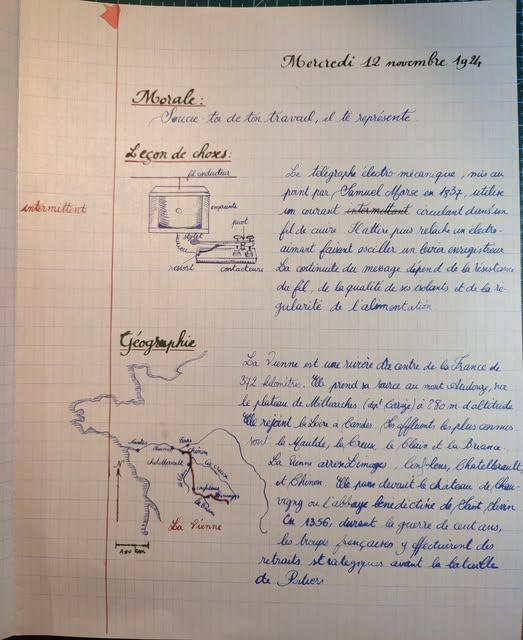 Mercredi 12 novembre 1924
Morale:
Soucie-toi de ton travail, il te représente
Leçon de choses:
fil conducteur
empreinte
pivot
stylet
ressort
contacteur
intermittent
Le télégraphe électro-mécanique, mis au
point par Samuel Morse en 1837, utilise
un courant intermittant circulant dans un
fil de cuivre. Il attire puis relache un électro-
aimant faisant osciller un levier enregistreur
La continuité du message dépend de la résistance
du fil, de la qualité de ses isolants et de la ré-
gularité de l'alimentation
Géographie
La Vienne est une rivière du centre de la France de
372 kilomètres. Elle prend sa source au mont Audouze, sur
le plateau de Millevaches (dépt Corrèze) à 880 m d'altitude
Elle rejoint la Loire à Candes. Ses affluents les plus connus
sont la Maulde, la Creuse, le Clain et la Briance.
La Vienne arrose Limoges, Confolens, Chatellerault
et Chinon. Elle passe devant le chateau de Chau-
vigny ou l'abbaye bénédictine de Saint Savin
En 1356, durant la guerre de cent ans,
les troupes françaises y effectuèrent des
retraits stratégiques avant la bataille
de Poitiers
Nantes
Tours
Chinon
chatellerault
La Creuse
confolens
Limoges
N
La Vienne
100 km